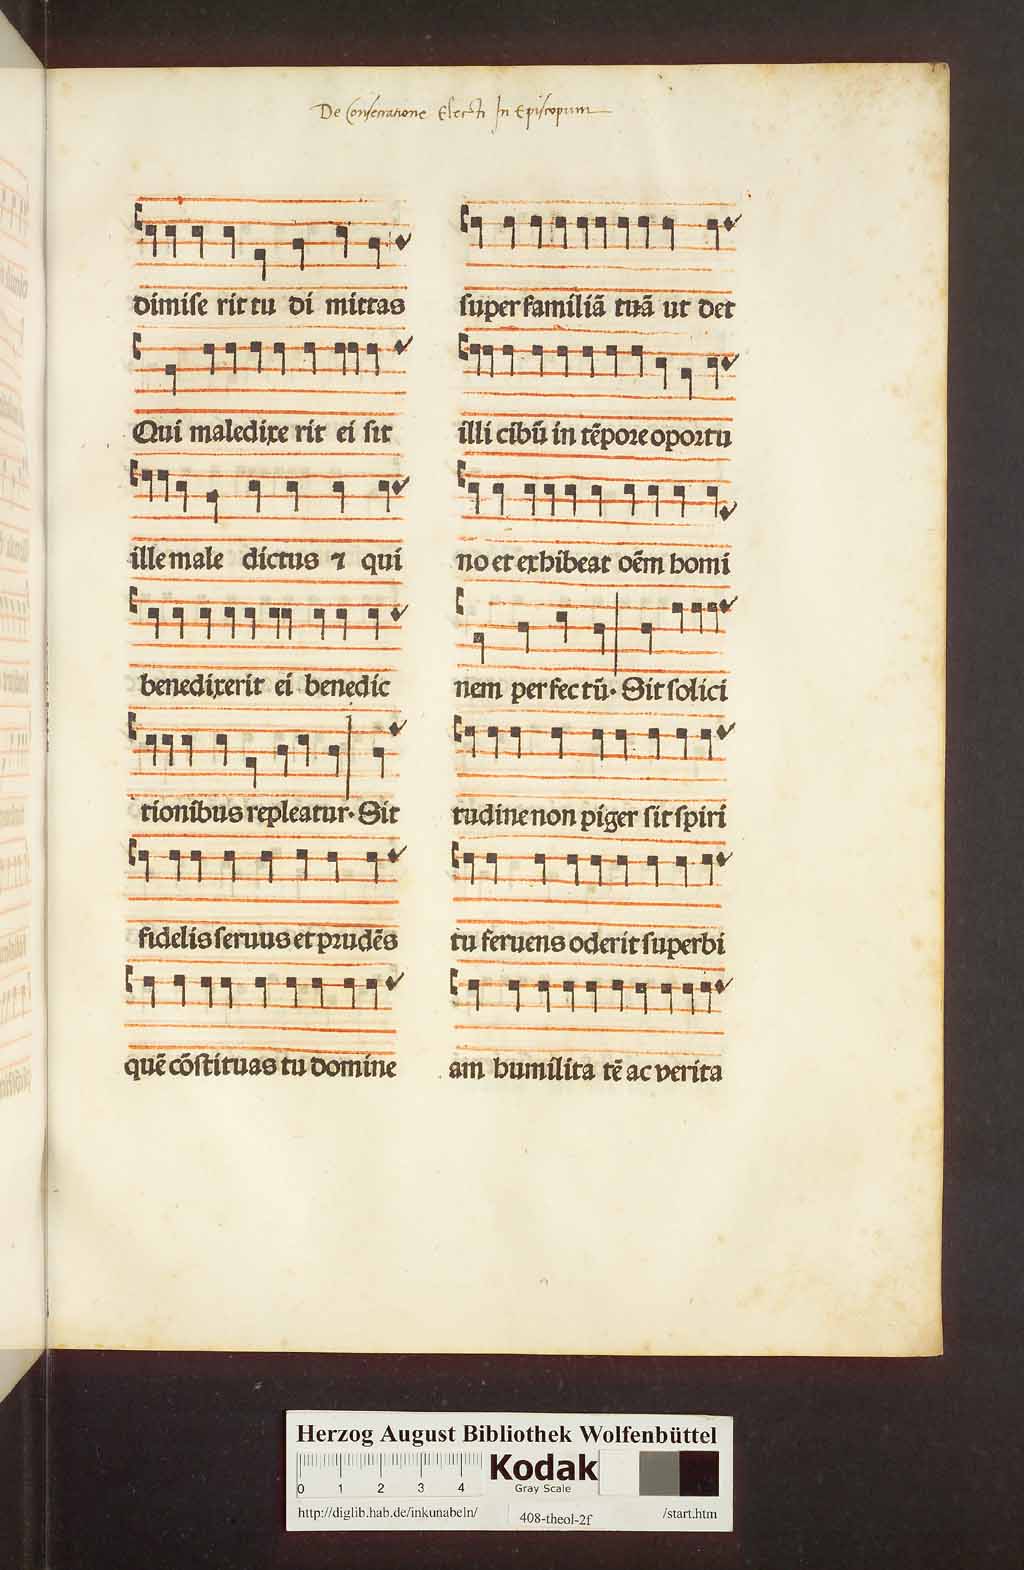 De Consecratione Electi In Episcopum
dimise rit tu di mittas
Qui maledixe rit ei sit
ille male dictus ⁊ qui
benedixerit ei benedic
tionibus repleatur. Sit
fidelis seruus et prudēs
quē cōstituas tu domine
super familiā tuā ut det
illi cibū in tēpore oportu
no et exhibeat oēm homi
nem perfectū. Sit solici
tudine non piger sit spiri
tu feruens oderit superbi
am humilita tē ac verita
Herzog August Bibliothek Wolfenbüttel
0 1 2 3 4
Kodak
Gray Scale
http://diglib.hab.de/inkunabeln/ 408-theol-2f /start.htm